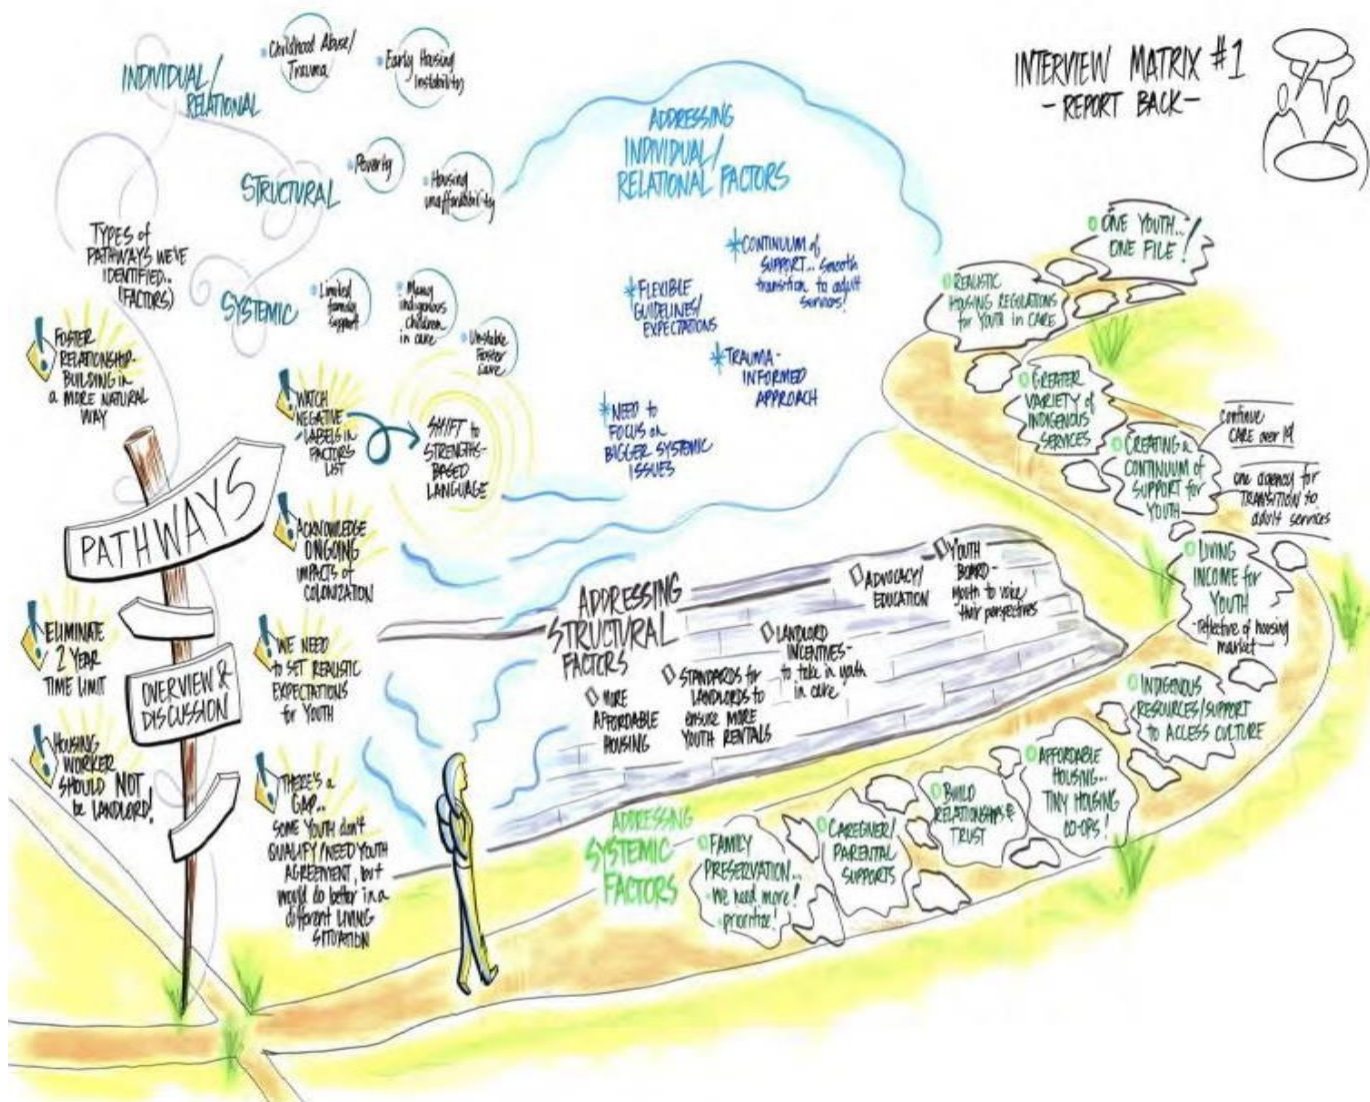 INTERVIEW MATRIX #1
- REPORT BACK -
INDIVIDUAL/
RELATIONAL
Childhood Abuse/
Trauma
Early Housing
Instability
STRUCTURAL
Poverty
Housing
unaffordability
TYPES of
PATHWAYS WE'VE
IDENTIFIED..
(FACTORS)
SYSTEMIC
Limited
family
support
Many
indigenous
children
in care
Unstable
Foster
Care
FOSTER
RELATIONSHIP-
BUILDING in
a MORE NATURAL
WAY
WATCH
NEGATIVE
LABELS in
FACTORS
LIST
SHIFT to
STRENGTHS-
BASED
LANGUAGE
ACKNOWLEDGE
ONGOING
IMPACTS of
COLONIZATION
PATHWAYS
OVERVIEW &
DISCUSSION
ELIMINATE
2 YEAR
TIME LIMIT
WE NEED
to SET REALISTIC
EXPECTATIONS
for YOUTH
HOUSING
WORKER
SHOULD NOT
be LANDLORD!
THERE'S a
GAP..
SOME YOUTH don't
QUALIFY/NEED YOUTH
AGREEMENT, but
would do better in a
different LIVING
SITUATION
ADDRESSING
INDIVIDUAL/
RELATIONAL FACTORS
CONTINUUM of
SUPPORT... smooth
transition to adult
services!
FLEXIBLE
GUIDELINES/
EXPECTATIONS
TRAUMA-
INFORMED
APPROACH
NEED to
FOCUS on
BIGGER SYSTEMIC
ISSUES
ADDRESSING
STRUCTURAL
FACTORS
MORE
AFFORDABLE
HOUSING
STANDARDS for
LANDLORDS to
ensure MORE
YOUTH RENTALS
LANDLORD
INCENTIVES-
to take in youth
in care
ADVOCACY/
EDUCATION
YOUTH
BOARD-
youth to voice
their perspectives
ADDRESSING
SYSTEMIC
FACTORS
FAMILY
PRESERVATION..
We need more!
prioritize!
CAREGIVER/
PARENTAL
SUPPORTS
BUILD
RELATIONSHIPS &
TRUST
AFFORDABLE
HOUSING..
TINY HOUSING
CO-OPS!
INDIGENOUS
RESOURCES/SUPPORT
TO ACCESS CULTURE
LIVING
INCOME for
YOUTH
- reflective of housing
market -
CREATING a
CONTINUUM of
SUPPORT for
YOUTH
continue
CARE over 19
one agency for
TRANSITION to
adult services
GREATER
VARIETY of
INDIGENOUS
SERVICES
REALISTIC
HOUSING REGULATIONS
for YOUTH in CARE
ONE YOUTH..
ONE FILE!